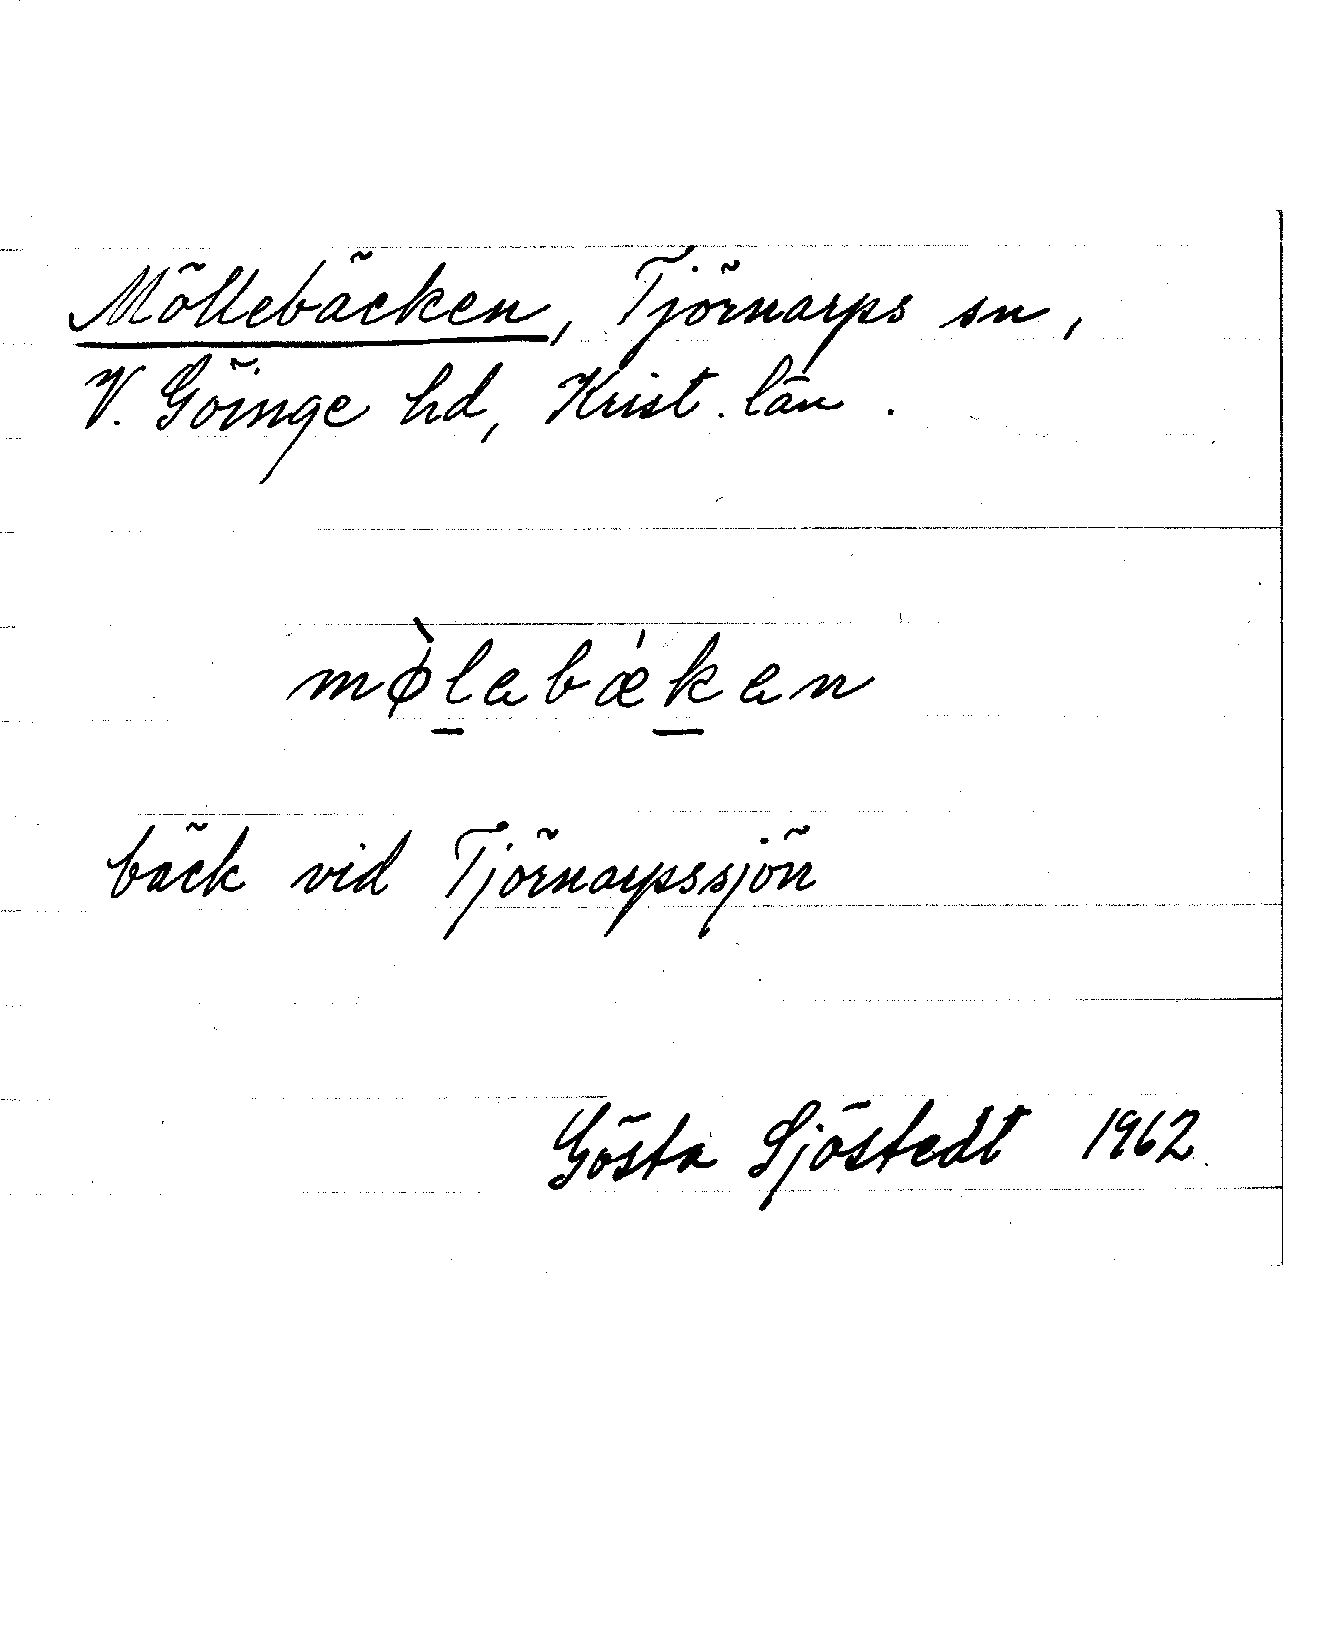 Möllebäcken, Tjörnarps sn,
V. Göinge hd, Krist. län.
mø̀l̲abǽk̲an
bäck vid Tjörnarpssjön
Gösta Sjöstedt 1962